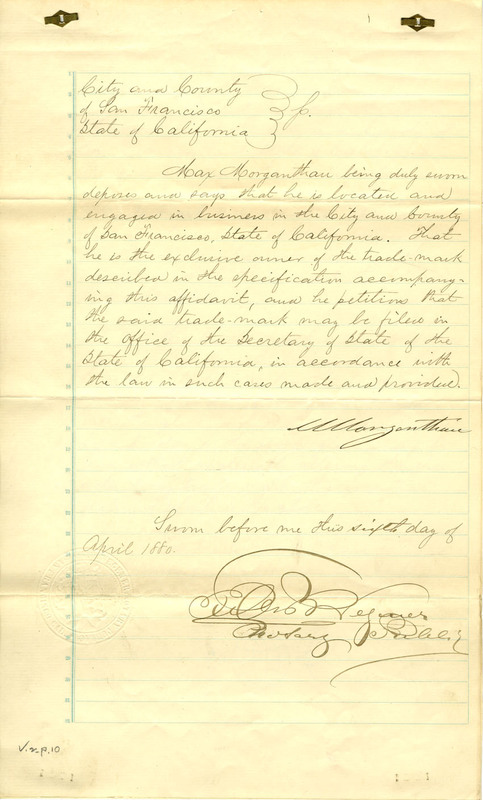 City and County
of San Francisco
State of California
Max Morganthau being duly sworn
deposes and says that he is located and
engaged in business in the City and County
of San Francisco, State of California. That
he is the exclusive owner of the trade-mark
described in the specification accompany-
ing this affidavit, and he petitions that
the said trade-mark may be filed in
the office of the Secretary of State of the
State of California, in accordance with
the law in such cases made and provided.
M Morganthau
Sworn before me this sixth day of
April 1880.
Notary Public
V.2.p.10